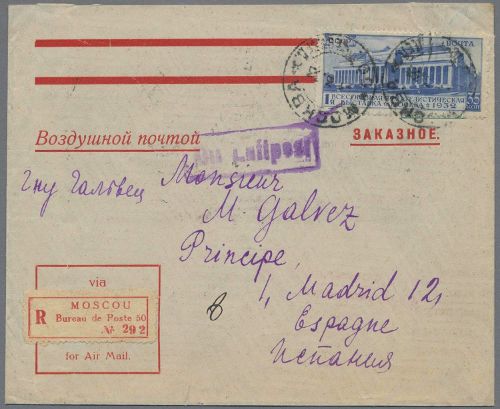 ПОЧТА
ВСЕСОЮЗНАЯ ФИЛАТЕЛИСТИЧЕСКАЯ
ВЫСТАВКА МОСКВА 1932
35
МОСКВА
Воздушной почтой
ЗАКАЗНОЕ.
Mit Luftpost
Гну Галовец
Monsieur
M. Galvez
Principe,
1, Madrid 12,
Espagne
Испания
via
MOSCOU
R Bureau de Poste 50
№ 292
for Air Mail.